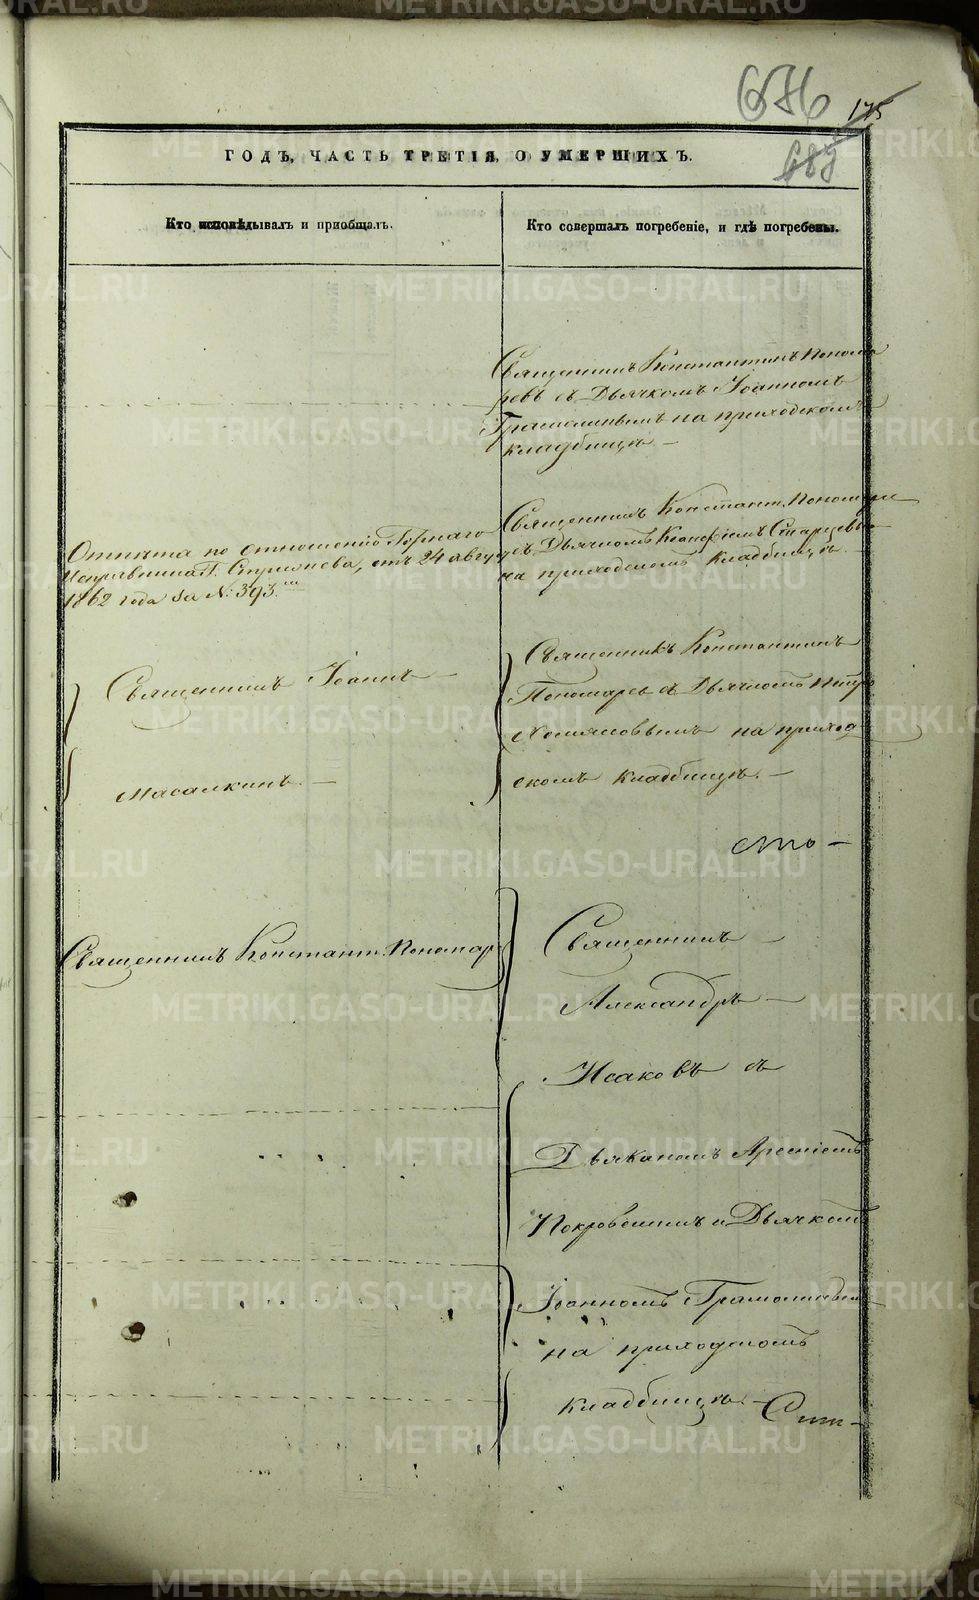 676
175
ГОДЪ, ЧАСТЬ ТРЕТІЯ, О УМЕРШИХЪ.
Кто исповѣдывалъ и пріобщалъ.
Кто совершалъ погребеніе, и гдѣ погребены.
Священникъ Константинъ Понома
ревъ съ Дьячкомъ Іоанномъ
на приходскомъ
кладбищѣ —
Отпѣта по отношенію Горнаго
Исправника Г. отъ 24 августа
1862 года за №: 393.
Священникъ Констант. Пономаре
съ Дьячкомъ Старцевы
на приходскомъ кладбищѣ. —
Священникъ Іоаннъ —
Масалкинъ. —
Священникъ Константинъ
Пономарев съ Дьячкомъ Петро
на приход
скомъ кладбищѣ. —
сто —
Священникъ Констант. Пономар
Священникъ —
Александръ —
Исаковъ съ
Дьякономъ Арсеніемъ
Покровскимъ и Дьячкомъ
Іоанномъ
на приходскомъ
кладбищѣ. —
METRIKI.GASO-URAL.RU